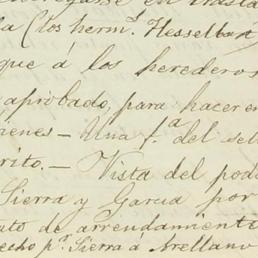 la (los herm.s Hesselbart
que á los herederos
aprobado, para hacer en
bienes — Una f.a del sell
rito. — Vista del pode
Sierra y Garcia por
ato de arrendamient
echo p.r Sierra á Arellano